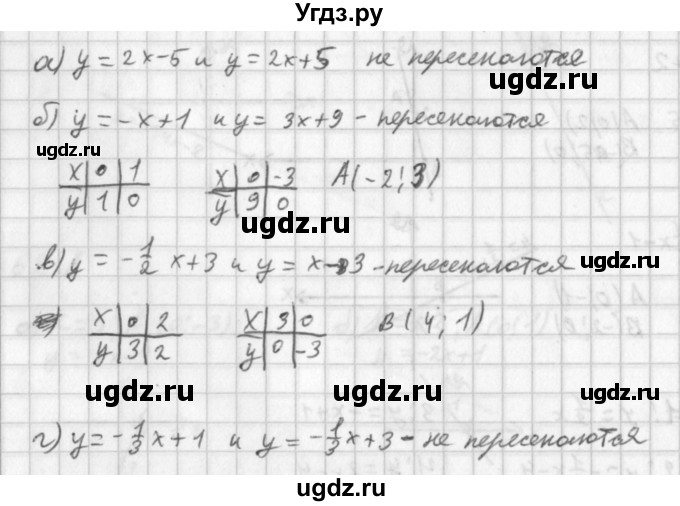 Угдз.ру
а) y = 2x-5 и y = 2x+5 не пересекаются
ugdz.ru
б) y = -x+1 и y = 3x+9 - пересекаются
ugdz.ru
ugdz.ru
x | 0 | 1   x | 0 | -3   A(-2; 3)
y | 1 | 0   y | 9 | 0
ugdz.ru
в) y = -1/2 x+3 и y = x-3 - пересекаются
ugdz.ru
x | 0 | 2   x | 3 | 0   B(4; 1)
y | 3 | 2   y | 0 | -3
ugdz.ru
ugdz.ru
ugdz.ru
г) y = -1/3 x+1 и y = -1/3 x+3 - не пересекаются
ugdz.ru
ugdz.ru